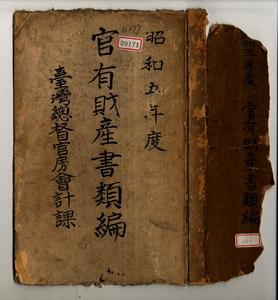 昭和五年度
官有財產書類編
臺灣總督官房會計課
11277
20171
昭和五年度 官有財產書類編